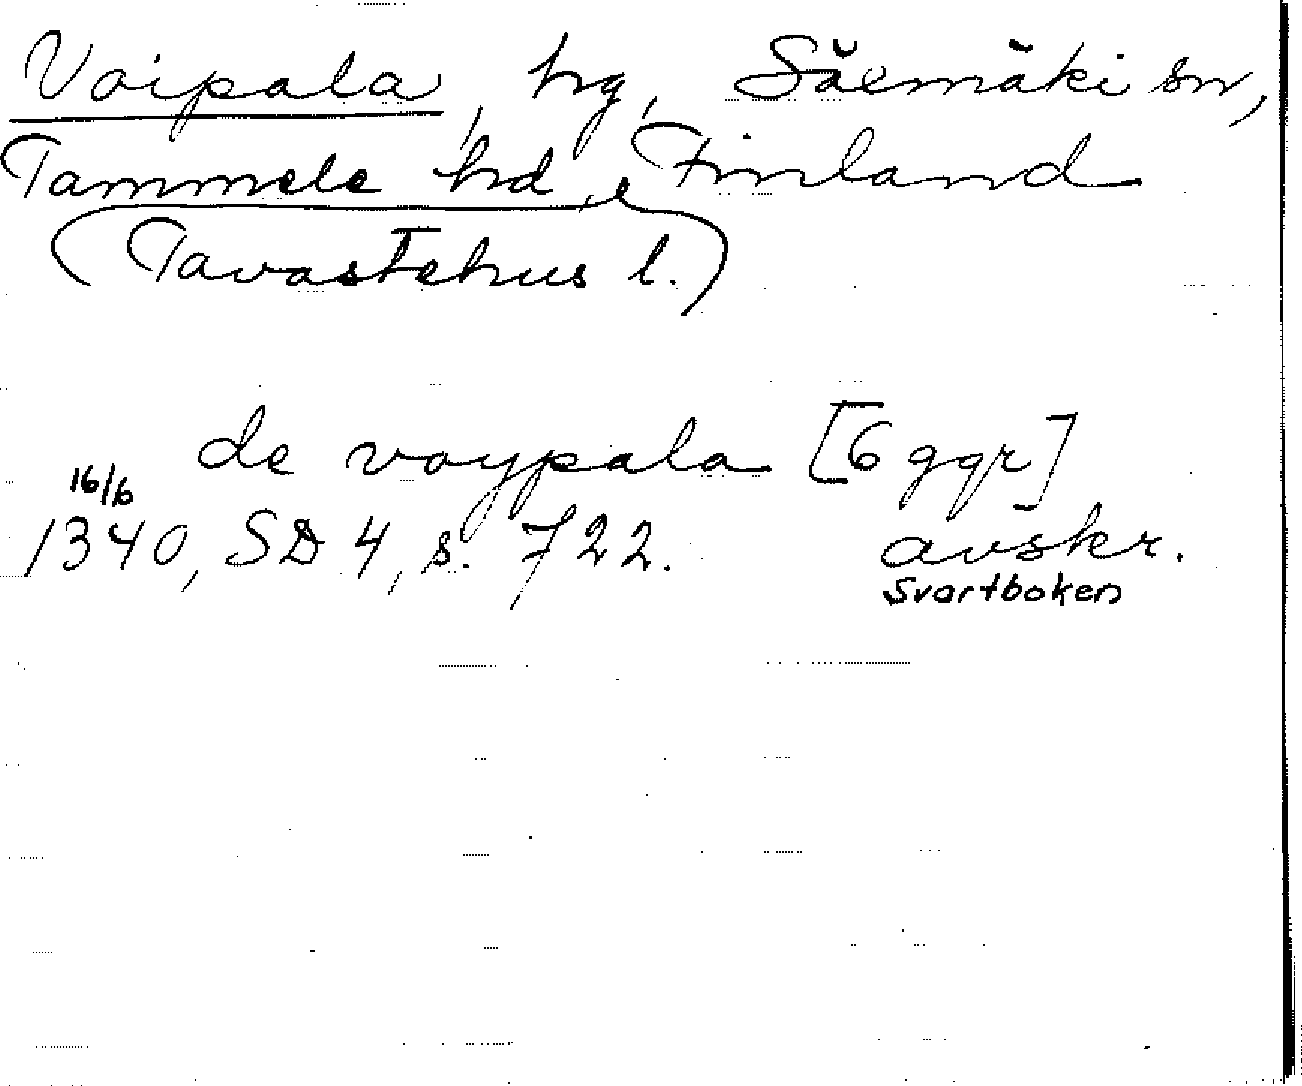 Voipala, hg, Säemäki sn,
Tammele hd, Finland
(Tavastehus l.)
de voypala [6 ggr]
16/6
1340, SD 4, s. 722. avskr.
Svartboken